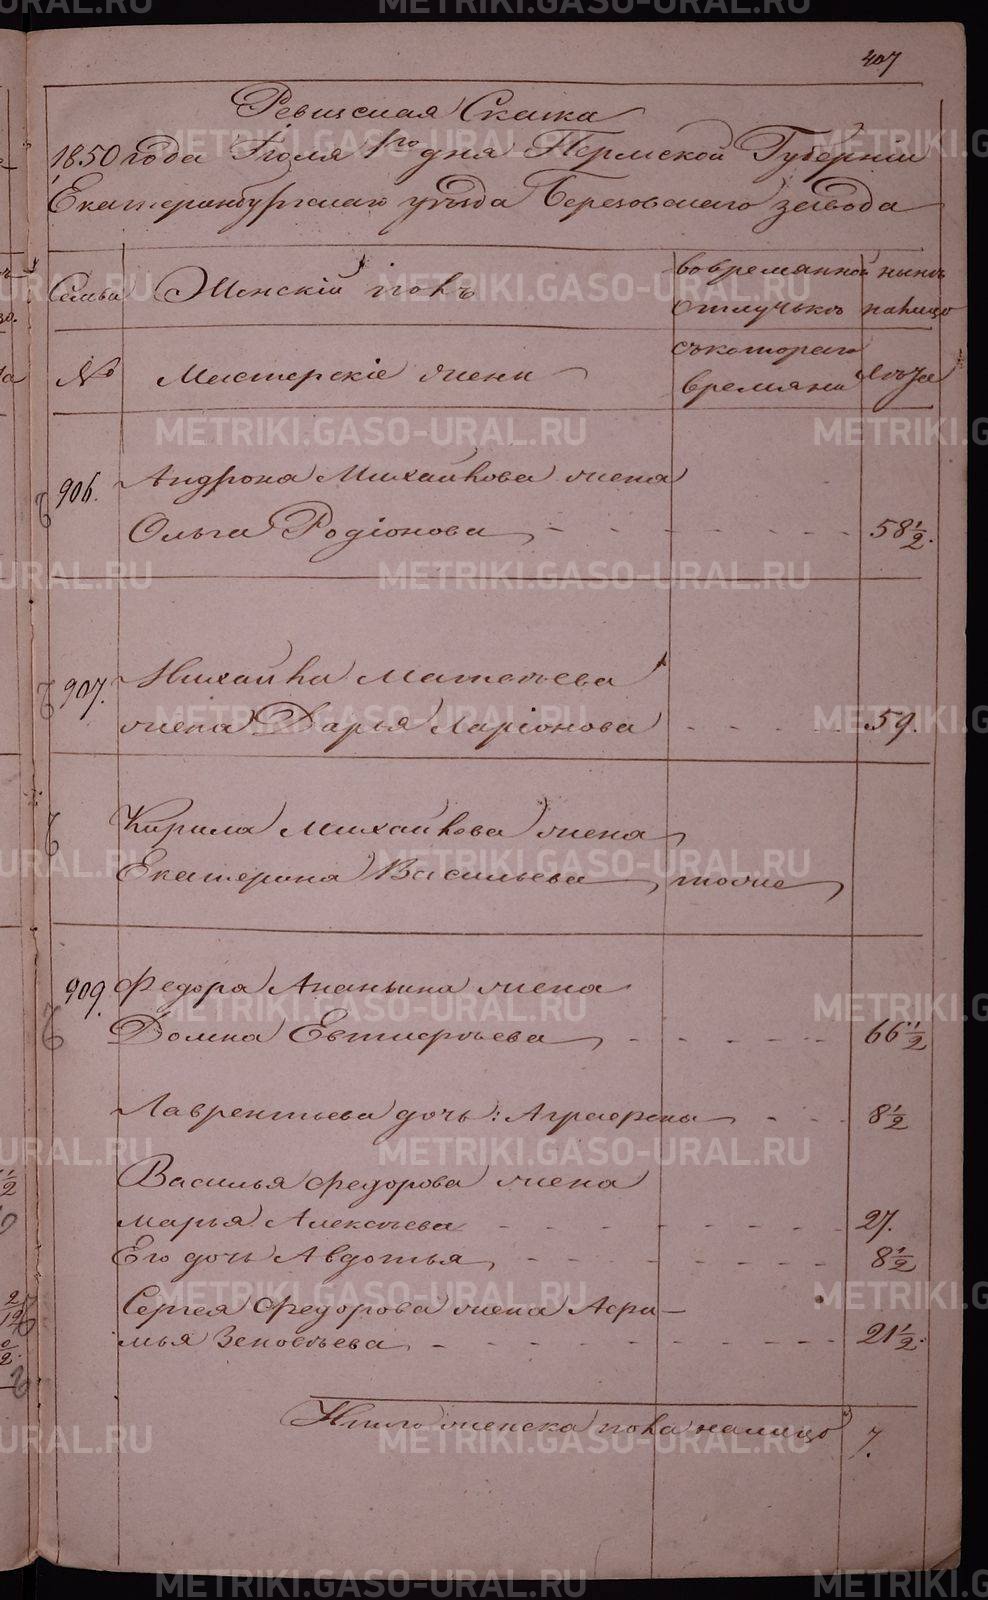 407
Ревизская Сказка
1850 года Іюля 1го дня Пермской Губерніи
Екатеринбургскаго уѣзда Березовскаго завода
Семьи Женскій полъ вовремянной нынѣ
отлучькѣ налицо
съкотораго
№ Мастерскіе жены времяни Лѣта
906. Андрона Михайлова жена
Ольга Родіонова 58 1/2.
907. Михайла Матвѣева
жена Дарья Ларіонова 59.
Кирила Михайлова жена
Екатерина Васильева тоже
909. Федора Ананьина жена
Домна Евтифѣева 66 1/2
Лаврентьева дочь: Аграфена 8 1/2
Василья Федорова жена
Марья Алексѣева 27.
Его дочь Авдотья 8 1/2
Сергея Федорова жена Афи-
мья Зеновѣева 21 1/2.
Итого женска пола налицо 7.
METRIKI.GASO-URAL.RU